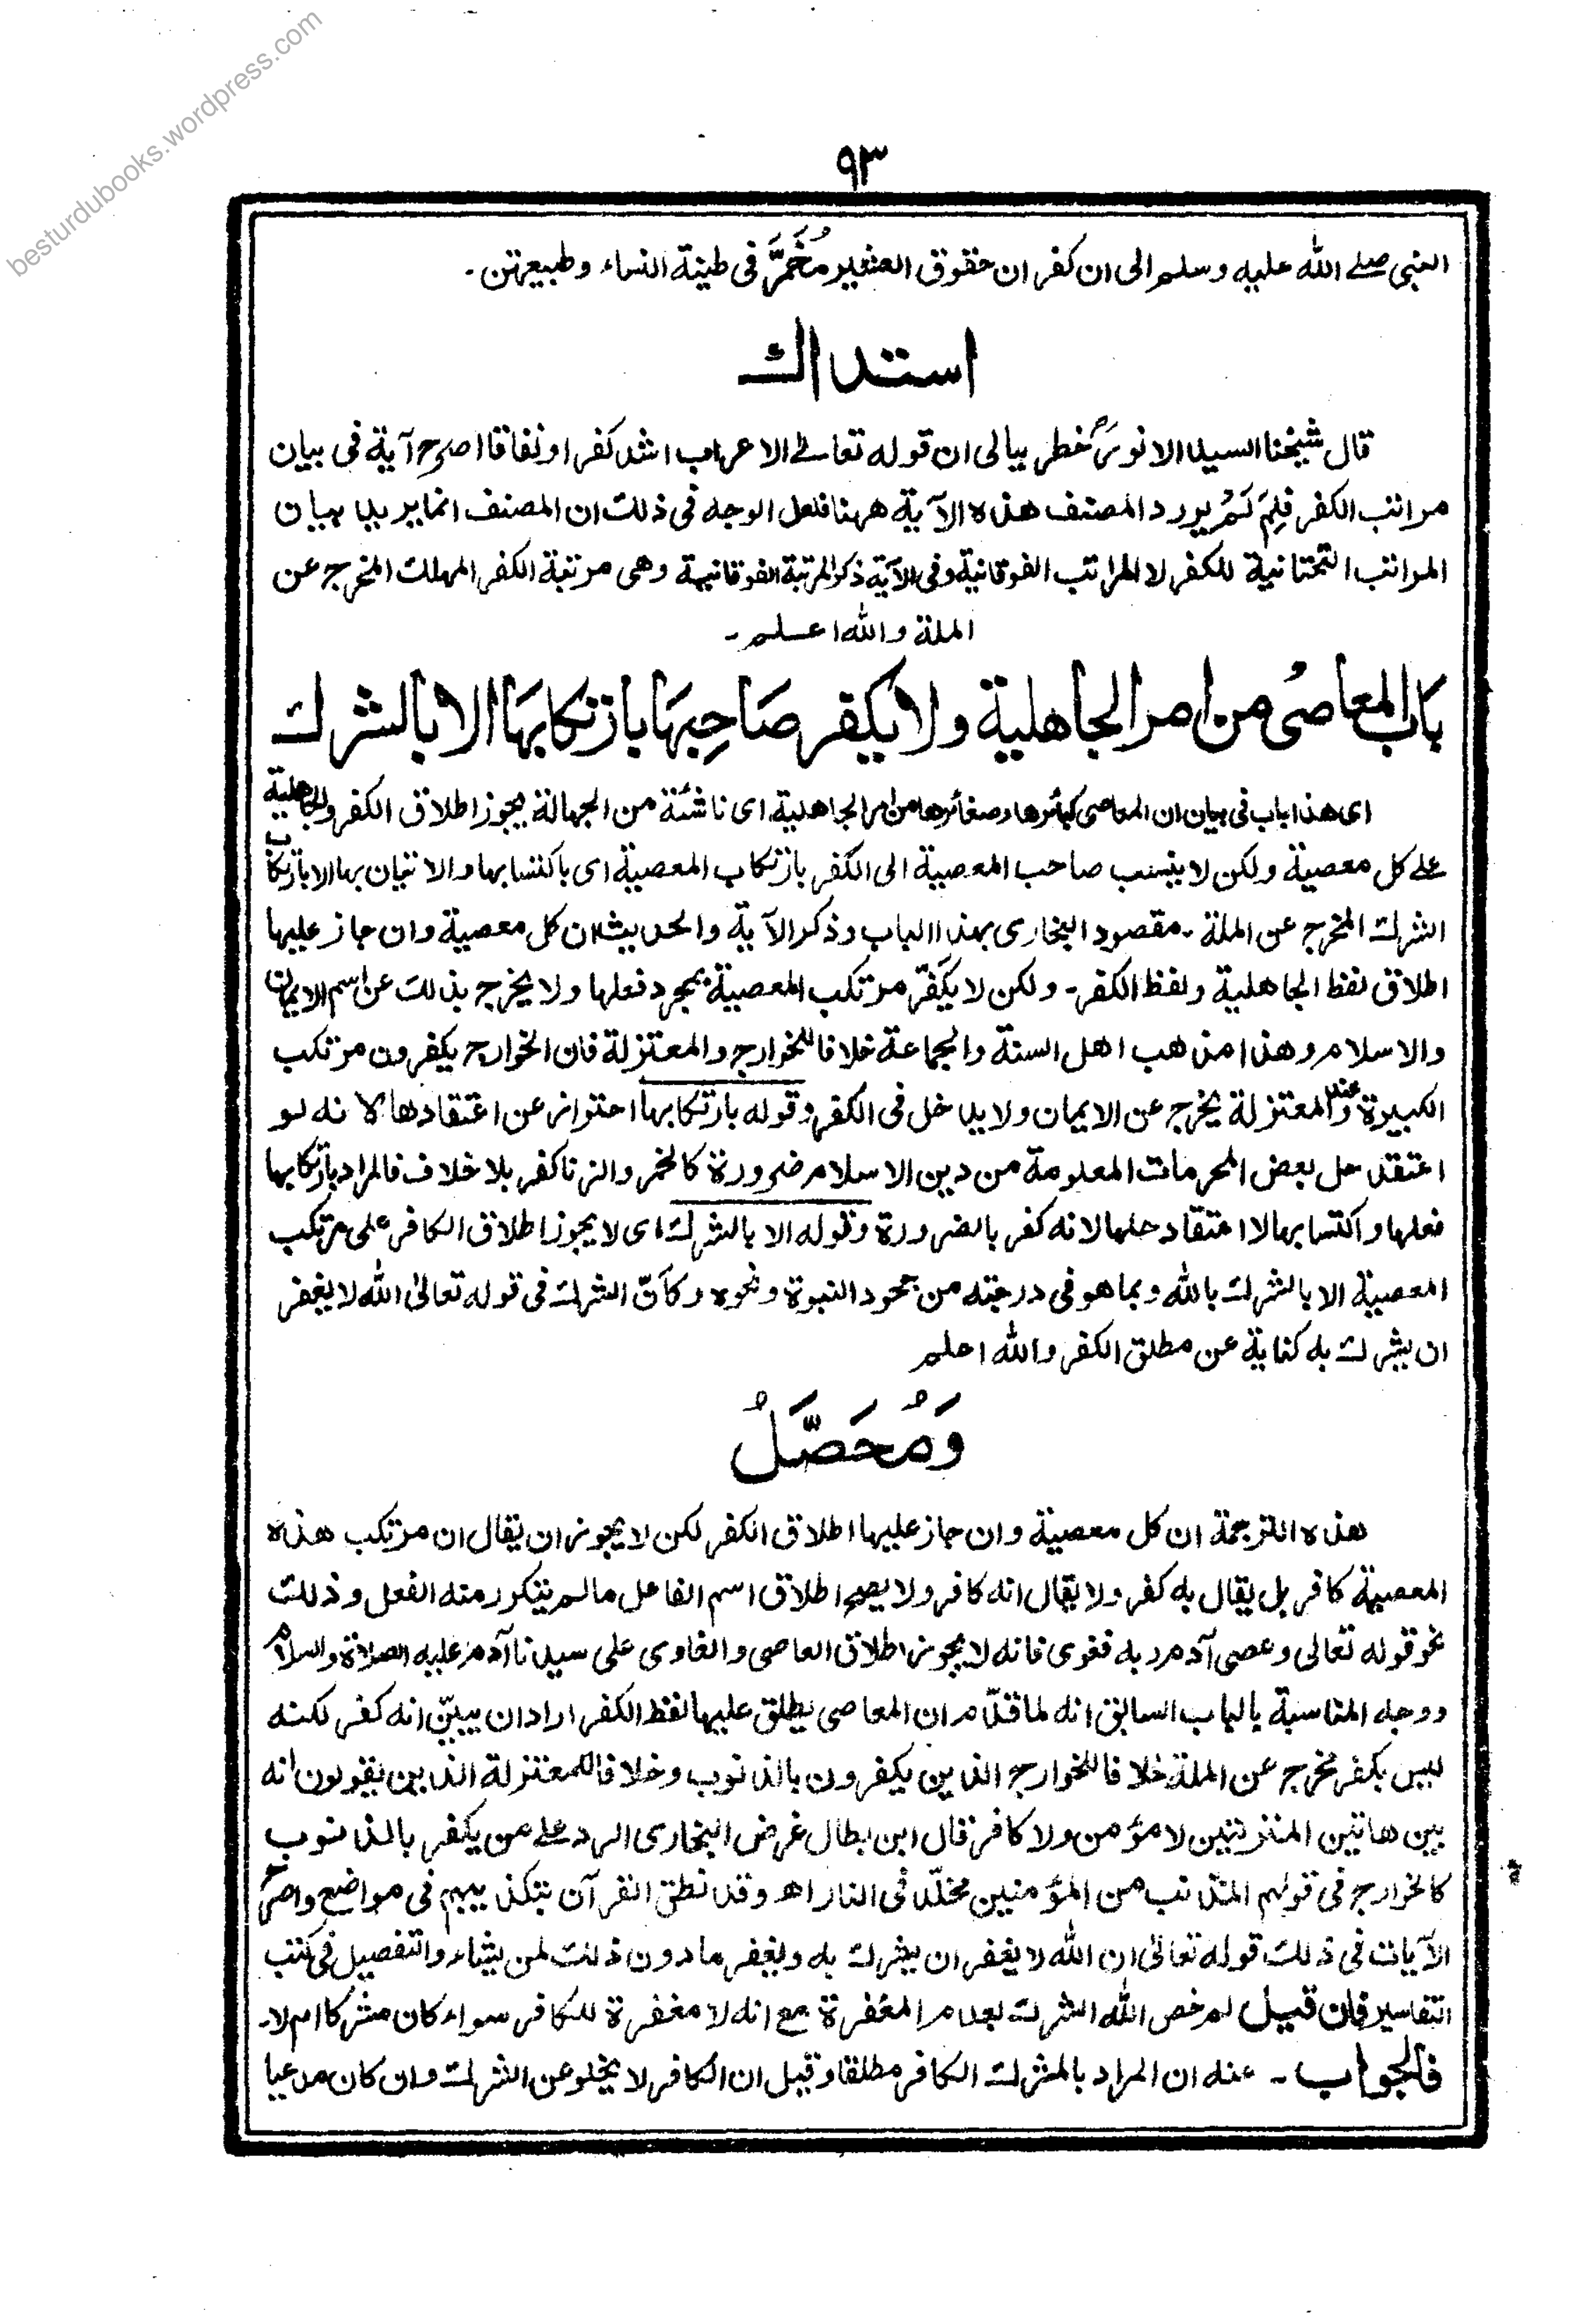 besturdubooks.wordpress.com
٩٣
النبی صلے اللہ علیہ وسلم الی ان کفران حقوق العشیر مُخَمَّرٌ فی طینۃ النساء وطبیعتهن۔
استدراك
قال شیخنا السید الانورؒ خطر ببالی ان قولہ تعالےٰ الاعراب اشد کفرا ونفاقا اصرح آیۃ فی بیان
مراتب الکفر فلِمَ لَمْ یورد المصنف هذه الآیۃ ههنا فلعل الوجه فی ذلك ان المصنف انما یرید بیان
المراتب التحتانیۃ للکفر لا المراتب الفوقانیۃ وفی الآیۃ ذکر المرتبۃ الفوقانیۃ وهی مرتبۃ الکفر المهلك المخرج عن
الملۃ واللہ اعلم۔
بَاب المعاصیُ من امر الجاهلیۃ ولا یکفر صَاحِبهَا بارتکابهَا الا بالشرك
ای هذا باب فی بیان ان المعاصی کبائرها وصغائرها من امر الجاهلیۃ ای ناشئۃ من الجهالۃ یجوز اطلاق الکفر والجاهلیۃ
علے کل معصیۃ ولکن لا ینسب صاحب المعصیۃ الی الکفر بارتکاب المعصیۃ ای باکتسابها والاتیان بها الا بارتکاب
الشرك المخرج عن الملۃ۔ مقصود البخاری بهذا الباب وذکر الآیۃ والحدیث ان کل معصیۃ وان جاز علیها
اطلاق لفظ الجاهلیۃ ولفظ الکفر۔ ولکن لا یکفّر مرتکب المعصیۃ بمجرد فعلها ولا یخرج بذلك عن اسم الایمان
والاسلام وهذا مذهب اهل السنۃ والجماعۃ خلافا للخوارج والمعتزلۃ فان الخوارج یکفرون مرتکب
الکبیرۃ وعند المعتزلۃ یخرج عن الایمان ولا یدخل فی الکفر وقوله بارتکابها احتراز عن اعتقادها لانه لو
اعتقد حل بعض المحرمات المعلومۃ من دین الاسلام ضرورۃ کالخمر والزنا کفر بلا خلاف فالمراد بارتکابها
فعلها واکتسابها لا اعتقاد حلها لانه کفر بالضرورۃ وقوله الا بالشرك ای لا یجوز اطلاق الکافر علی مرتکب
المعصیۃ الا بالشرك باللہ وبما هو فی درجته من جحود النبوۃ ونحوه وکأنّ الشرك فی قوله تعالیٰ اللہ لا یغفر
ان یشرك به کنایۃ عن مطلق الکفر واللہ اعلم
وَمُحَصَّلُ
هذه الترجمۃ ان کل معصیۃ وان جاز علیها اطلاق الکفر لکن لا یجوز ان یقال ان مرتکب هذه
المعصیۃ کافر بل یقال به کفر ولا یقال انه کافر ولا یصح اطلاق اسم الفاعل مالم یتکرر منه الفعل وذلك
نحو قوله تعالی وعصی آدم ربه فغوی فانه لا یجوز اطلاق العاصی والغاوی علی سیدنا آدم علیه الصلاۃ والسلام
ووجه المناسبۃ بالباب السابق انه لما قدّم ان المعاصی یطلق علیها لفظ الکفر اراد ان یبیّن انه کفر لکنه
لیس بکفر مخرج عن الملۃ خلافا للخوارج الذین یکفرون بالذنوب وخلافا للمعتزلۃ الذین یقولون انه
بین هاتین المنزلتین لا مؤمن ولا کافر قال ابن بطال غرض البخاری الرد علے من یکفر بالذنوب
کالخوارج فی قولهم المذنب من المؤمنین مخلّد فی النار اھ وقد نطق القرآن بتکذیبهم فی مواضع واصرح
الآیات فی ذلك قوله تعالیٰ ان اللہ لا یغفر ان یشرك به ویغفر مادون ذلك لمن یشاء والتفصیل فی کتب
التفاسیر فان قیل لم خص اللہ الشرك بعدم المغفرۃ مع انه لا مغفرۃ للکافر سواء کان مشرکا ام لا۔
فالجواب۔ عنه ان المراد بالمشرك الکافر مطلقا وقیل ان الکافر لا یخلو عن الشرك وان کان مدعیا